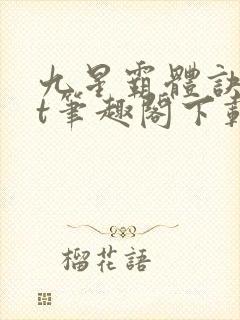 九星霸體訣
t筆趣閣下載
榴花語